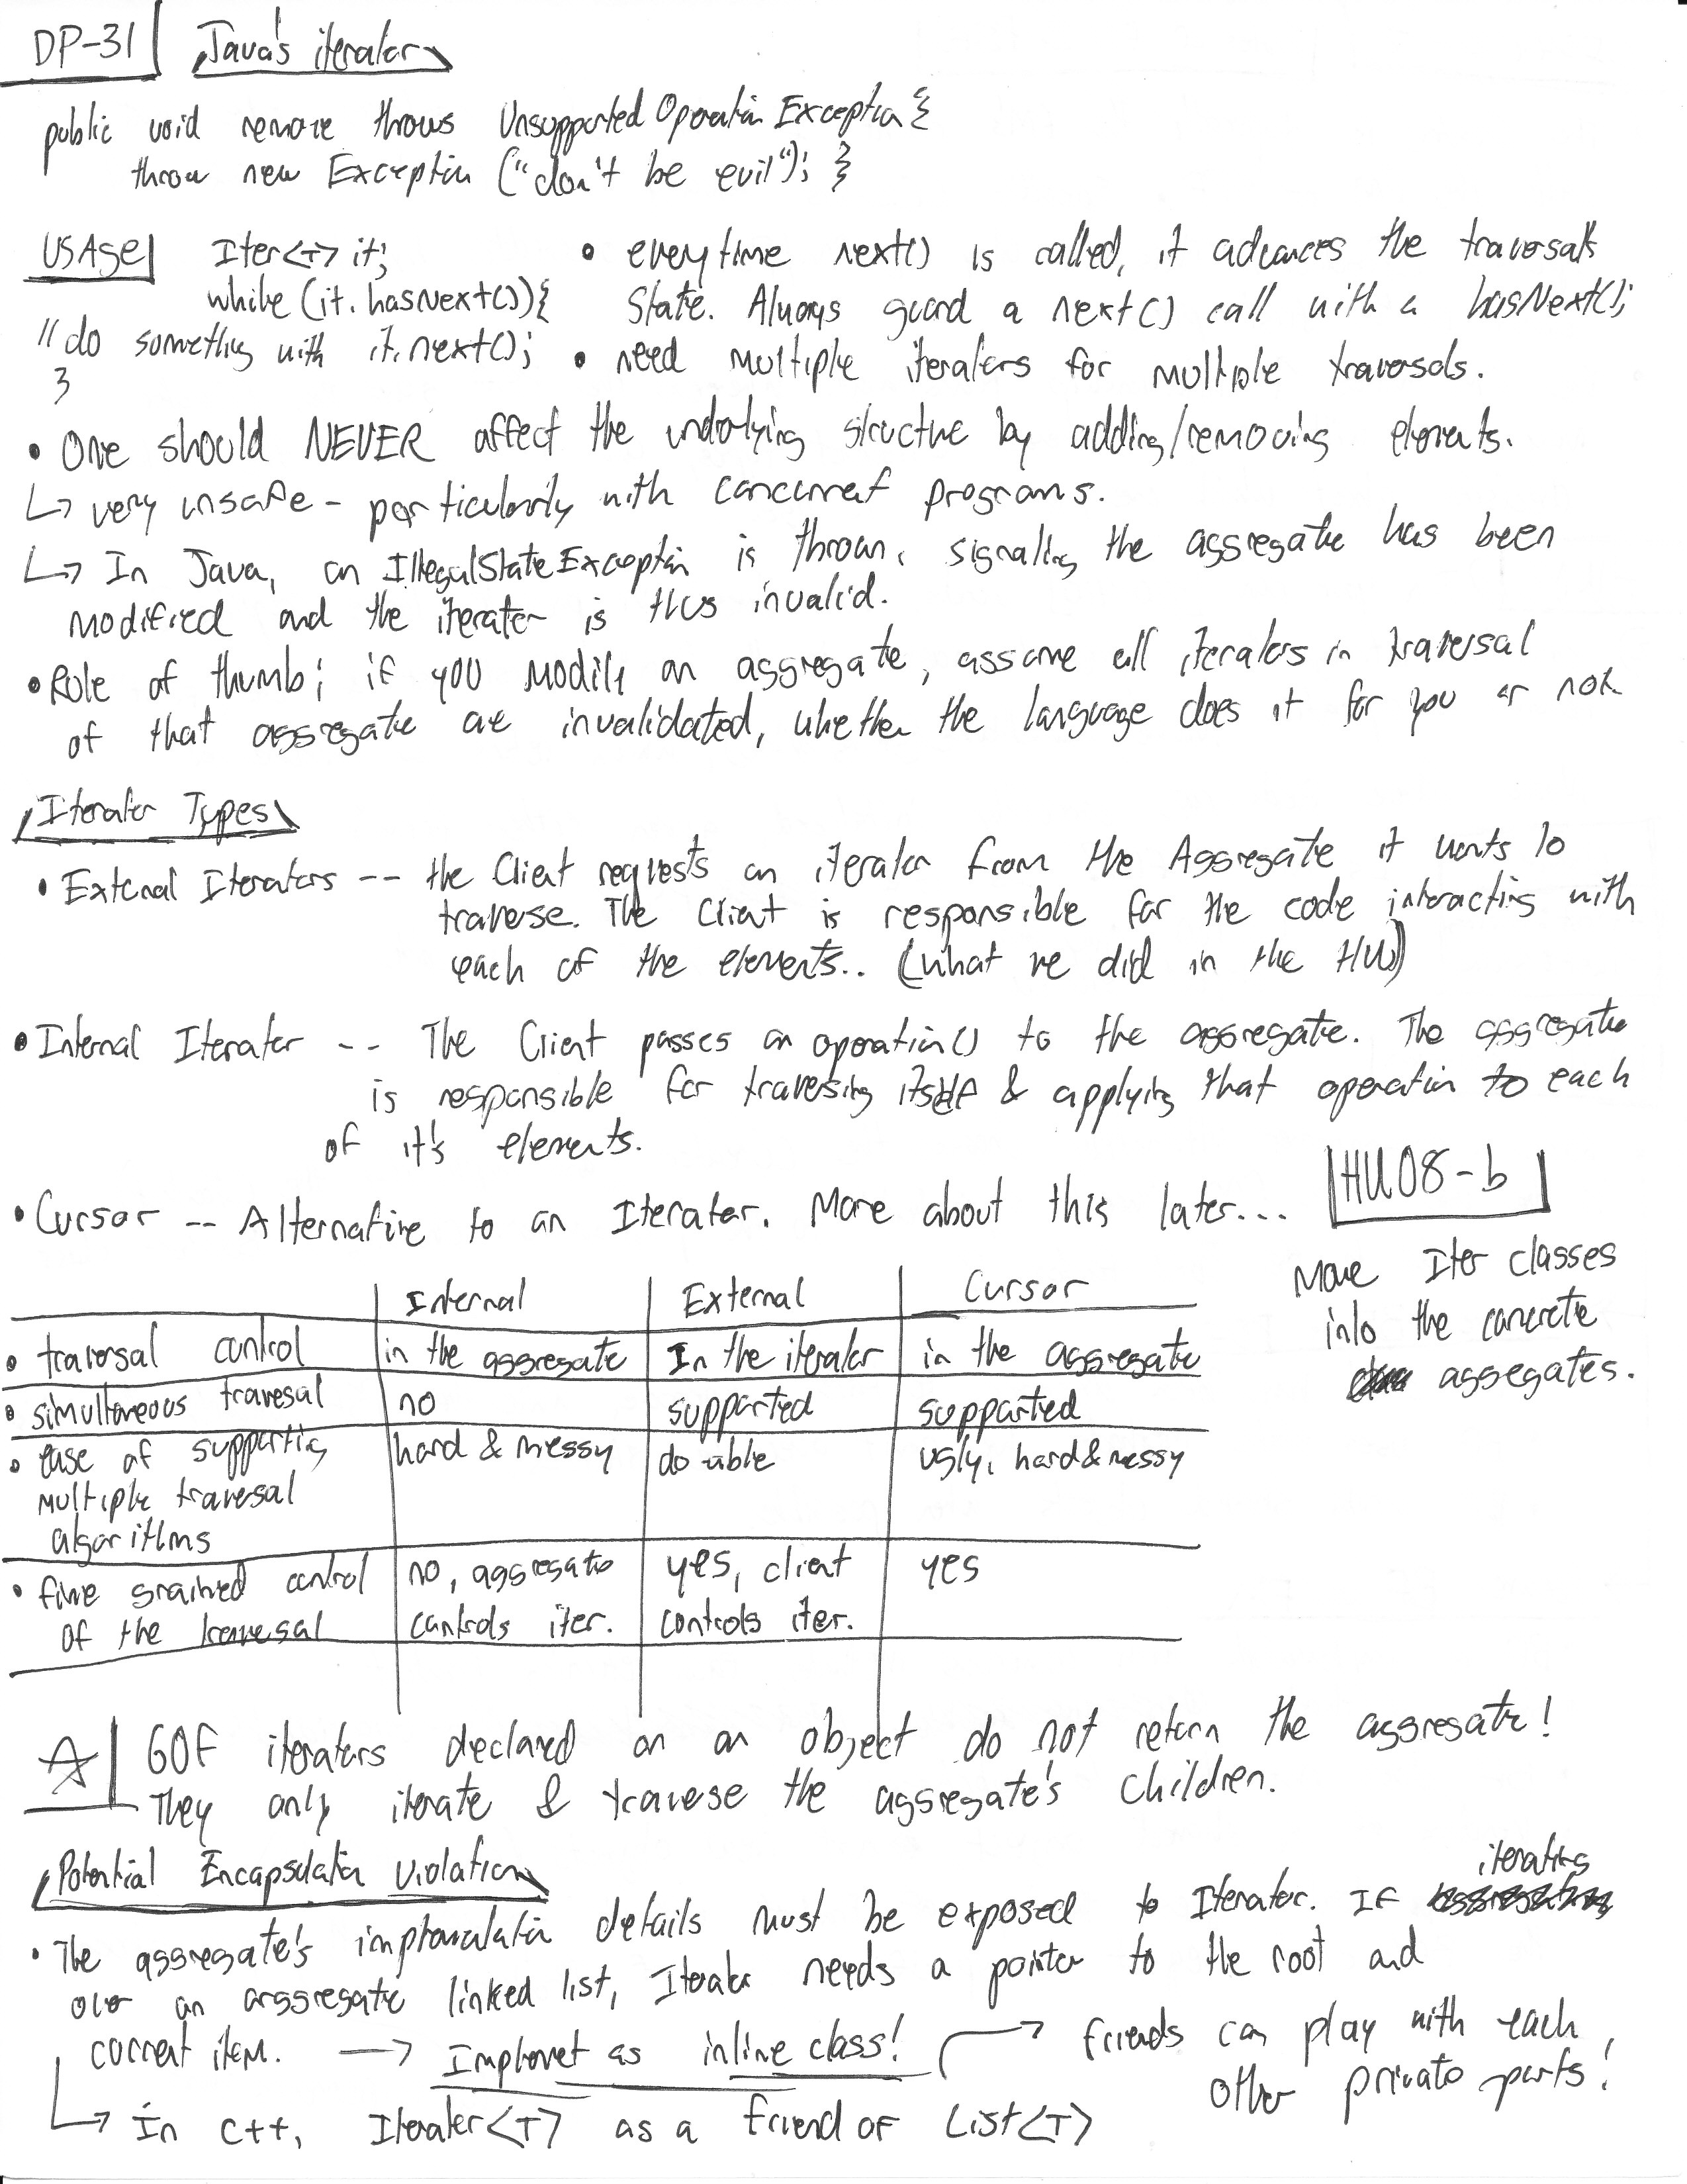 DP-31 Java's iterator
public void remove throws Unsupported Operation Exception {
throw new Exception ("don't be evil"); }
USAge Iter<T> it;
while (it.hasNext()){
// do something with it.next();
}
• everytime next() is called, it advances the traversals
state. Always guard a next() call with a hasNext();
• need multiple iterators for multiple traversals.
• One should NEVER affect the underlying structure by adding/removing elements.
↳ very unsafe - particularly with concurrent programs.
↳ In Java, an IllegalStateException is thrown, signalling the aggregate has been
modified and the iterator is thus invalid.
• Role of thumb; if you modify an aggregate, assume all iterators in traversal
of that aggregate are invalidated, whether the language does it for you or not.
Iterator Types
• External Iterators -- the Client requests an iterator from the Aggregate it wants to
traverse. The Client is responsible for the code interacting with
each of the elements.. (what we did in the HW)
• Internal Iterator -- The Client passes an operation() to the aggregate. The aggregate
is responsible for traversing itself & applying that operation to each
of it's elements.
• Cursor -- Alternative to an Iterator. More about this later...
HW08-b
Move Iter classes
into the concrete
aggregates.
Internal External Cursor
• traversal control in the aggregate In the iterator in the aggregate
• simultaneous traversal no supported supported
• ease of supporting hard & messy doable ugly, hard & messy
multiple traversal
algorithms
• fine grained control no, aggregate yes, client yes
of the traversal controls iter. controls iter.
☆ GOF iterators declared on an object do not return the aggregate!
They only iterate & traverse the aggregate's children.
Potential Encapsulation Violation
• The aggregate's implementation details must be exposed to Iterator. If iterating
over an aggregate linked list, Iterator needs a pointer to the root and
current item. → Implement as inline class! → friends can play with each
other private parts!
↳ in C++, Iterator<T> as a friend of List<T>